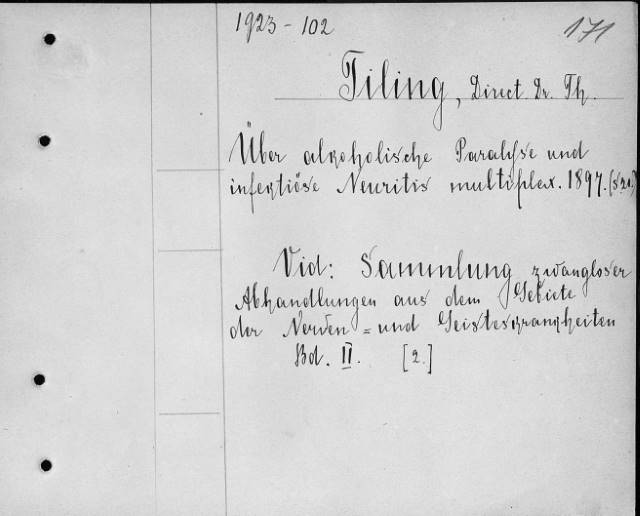 1923-102
171
Tiling, Direct. Dr. Th.
Über alkoholische Paralyse und
infektiöse Neuritis multiplex. 1897.
Vid: Sammlung zwangloser
Abhandlungen aus dem Gebiete
der Nerven = und Geisteskrankheiten
Bd. II. [2.]